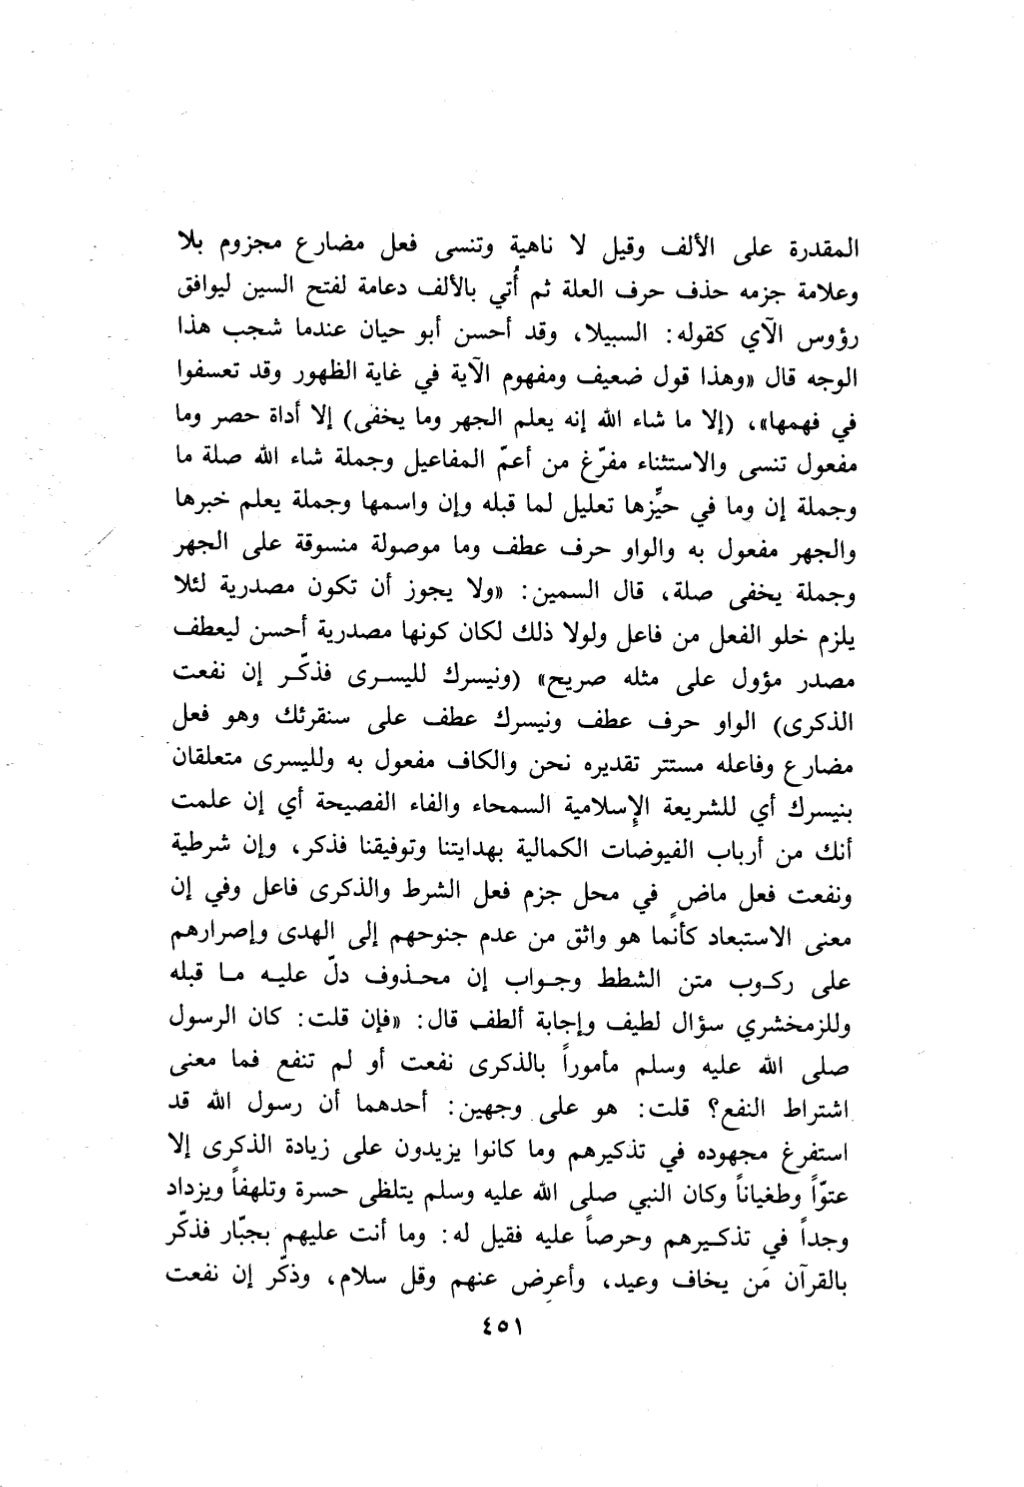 المقدرة على الألف وقيل لا ناهية وتنسى فعل مضارع مجزوم بلا
وعلامة جزمه حذف حرف العلة ثم أُتي بالألف دعامة لفتح السين ليوافق
رؤوس الآي كقوله: السبيلا، وقد أحسن أبو حيان عندما شجب هذا
الوجه قال «وهذا قول ضعيف ومفهوم الآية في غاية الظهور وقد تعسفوا
في فهمها»، (إلا ما شاء الله إنه يعلم الجهر وما يخفى) إلا أداة حصر وما
مفعول تنسى والاستثناء مفرّغ من أعمّ المفاعيل وجملة شاء الله صلة ما
وجملة إن وما في حيِّزها تعليل لما قبله وإن واسمها وجملة يعلم خبرها
والجهر مفعول به والواو حرف عطف وما موصولة منسوقة على الجهر
وجملة يخفى صلة، قال السمين: «ولا يجوز أن تكون مصدرية لئلا
يلزم خلو الفعل من فاعل ولولا ذلك لكان كونها مصدرية أحسن ليعطف
مصدر مؤول على مثله صريح» (ونيسرك لليسرى فذكّر إن نفعت
الذكرى) الواو حرف عطف ونيسرك عطف على سنقرئك وهو فعل
مضارع وفاعله مستتر تقديره نحن والكاف مفعول به ولليسرى متعلقان
بنيسرك أي للشريعة الإسلامية السمحاء والفاء الفصيحة أي إن علمت
أنك من أرباب الفيوضات الكمالية بهدايتنا وتوفيقنا فذكر، وإن شرطية
ونفعت فعل ماضٍ في محل جزم فعل الشرط والذكرى فاعل وفي إن
معنى الاستبعاد كأنما هو واثق من عدم جنوحهم إلى الهدى وإصرارهم
على ركوب متن الشطط وجواب إن محذوف دلّ عليه ما قبله
وللزمخشري سؤال لطيف وإجابة ألطف قال: «فإن قلت: كان الرسول
صلى الله عليه وسلم مأموراً بالذكرى نفعت أو لم تنفع فما معنى
اشتراط النفع؟ قلت: هو على وجهين: أحدهما أن رسول الله قد
استفرغ مجهوده في تذكيرهم وما كانوا يزيدون على زيادة الذكرى إلا
عتوّاً وطغياناً وكان النبي صلى الله عليه وسلم يتلظى حسرة وتلهفاً ويزداد
وجداً في تذكيرهم وحرصاً عليه فقيل له: وما أنت عليهم بجبّار فذكّر
بالقرآن مَن يخاف وعيد، وأعرِض عنهم وقل سلام، وذكّر إن نفعت
٤٥١